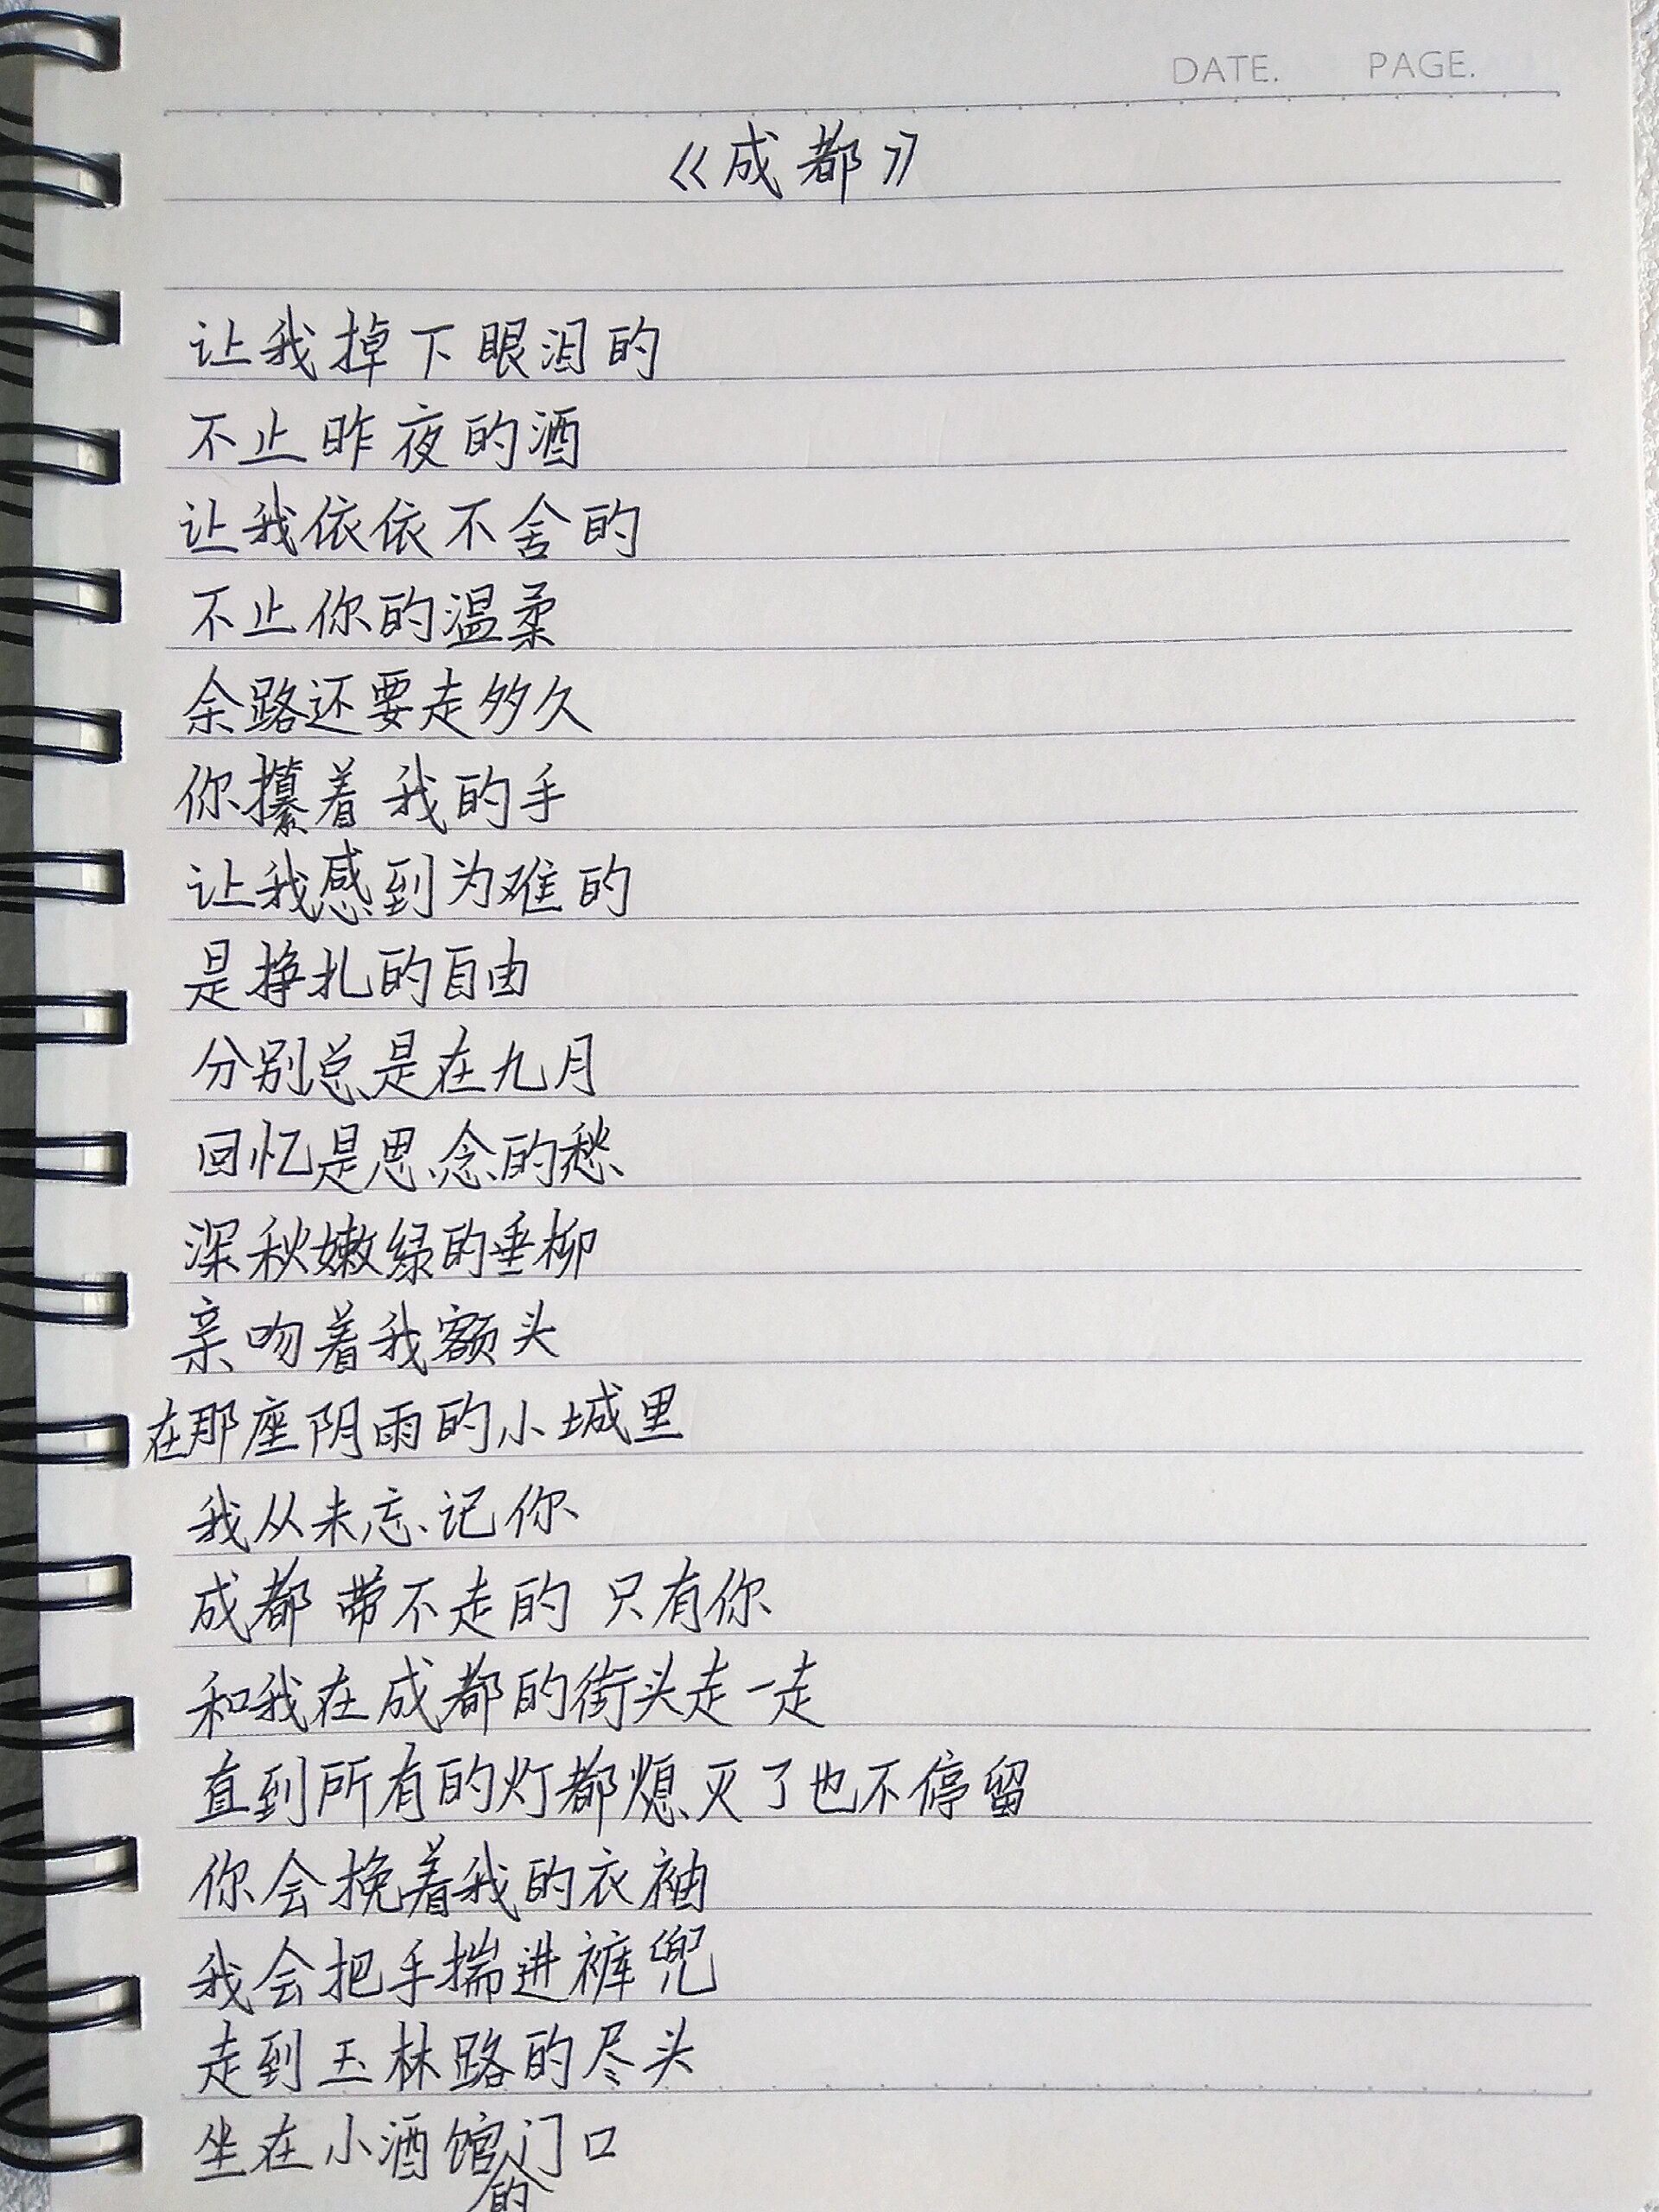 DATE. PAGE.
《成都》
让我掉下眼泪的
不止昨夜的酒
让我依依不舍的
不止你的温柔
余路还要走多久
你攥着我的手
让我感到为难的
是挣扎的自由
分别总是在九月
回忆是思念的愁
深秋嫩绿的垂柳
亲吻着我额头
在那座阴雨的小城里
我从未忘记你
成都 带不走的 只有你
和我在成都的街头走一走
直到所有的灯都熄灭了也不停留
你会挽着我的衣袖
我会把手揣进裤兜
走到玉林路的尽头
坐在小酒馆的门口